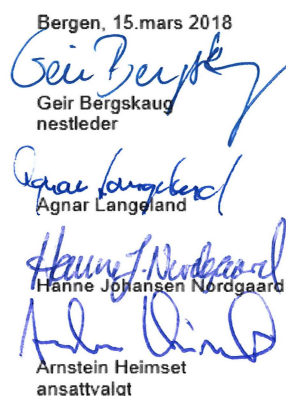 Bergen, 15.mars 2018
Geir Bergskaug
Geir Bergskaug
nestleder
Agnar Langeland
Agnar Langeland
Hanne J. Nordgaard
Hanne Johansen Nordgaard
Arnstein Heimset
ansattvalgt